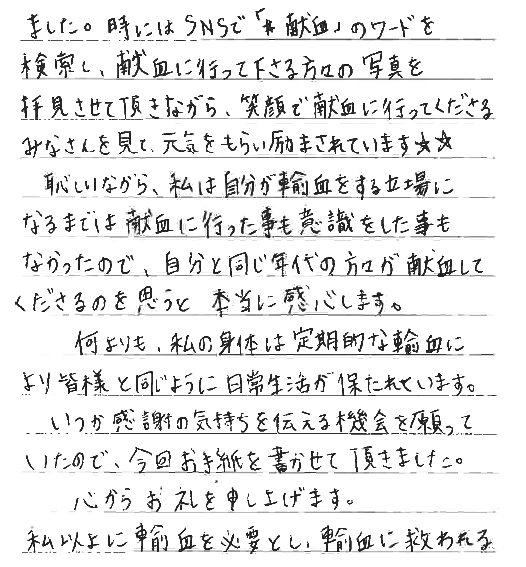 ました。時にはSNSで「#献血」のワードを
検索し、献血に行って下さる方々の写真を
拝見させて頂きながら、笑顔で献血に行ってくださる
みなさんを見て、元気をもらい励まされています☆☆
恥しいながら、私は自分が輸血をする立場に
なるまでは献血に行った事も意識をした事も
なかったので、自分と同じ年代の方々が献血して
くださるのを思うと本当に感心します。
何よりも、私の身体は定期的な輸血に
より皆様と同じように日常生活が保たれています。
いつか感謝の気持ちを伝える機会を願って
いたので、今回お手紙を書かせて頂きました。
心からお礼を申し上げます。
私以上に輸血を必要とし、輸血に救われる